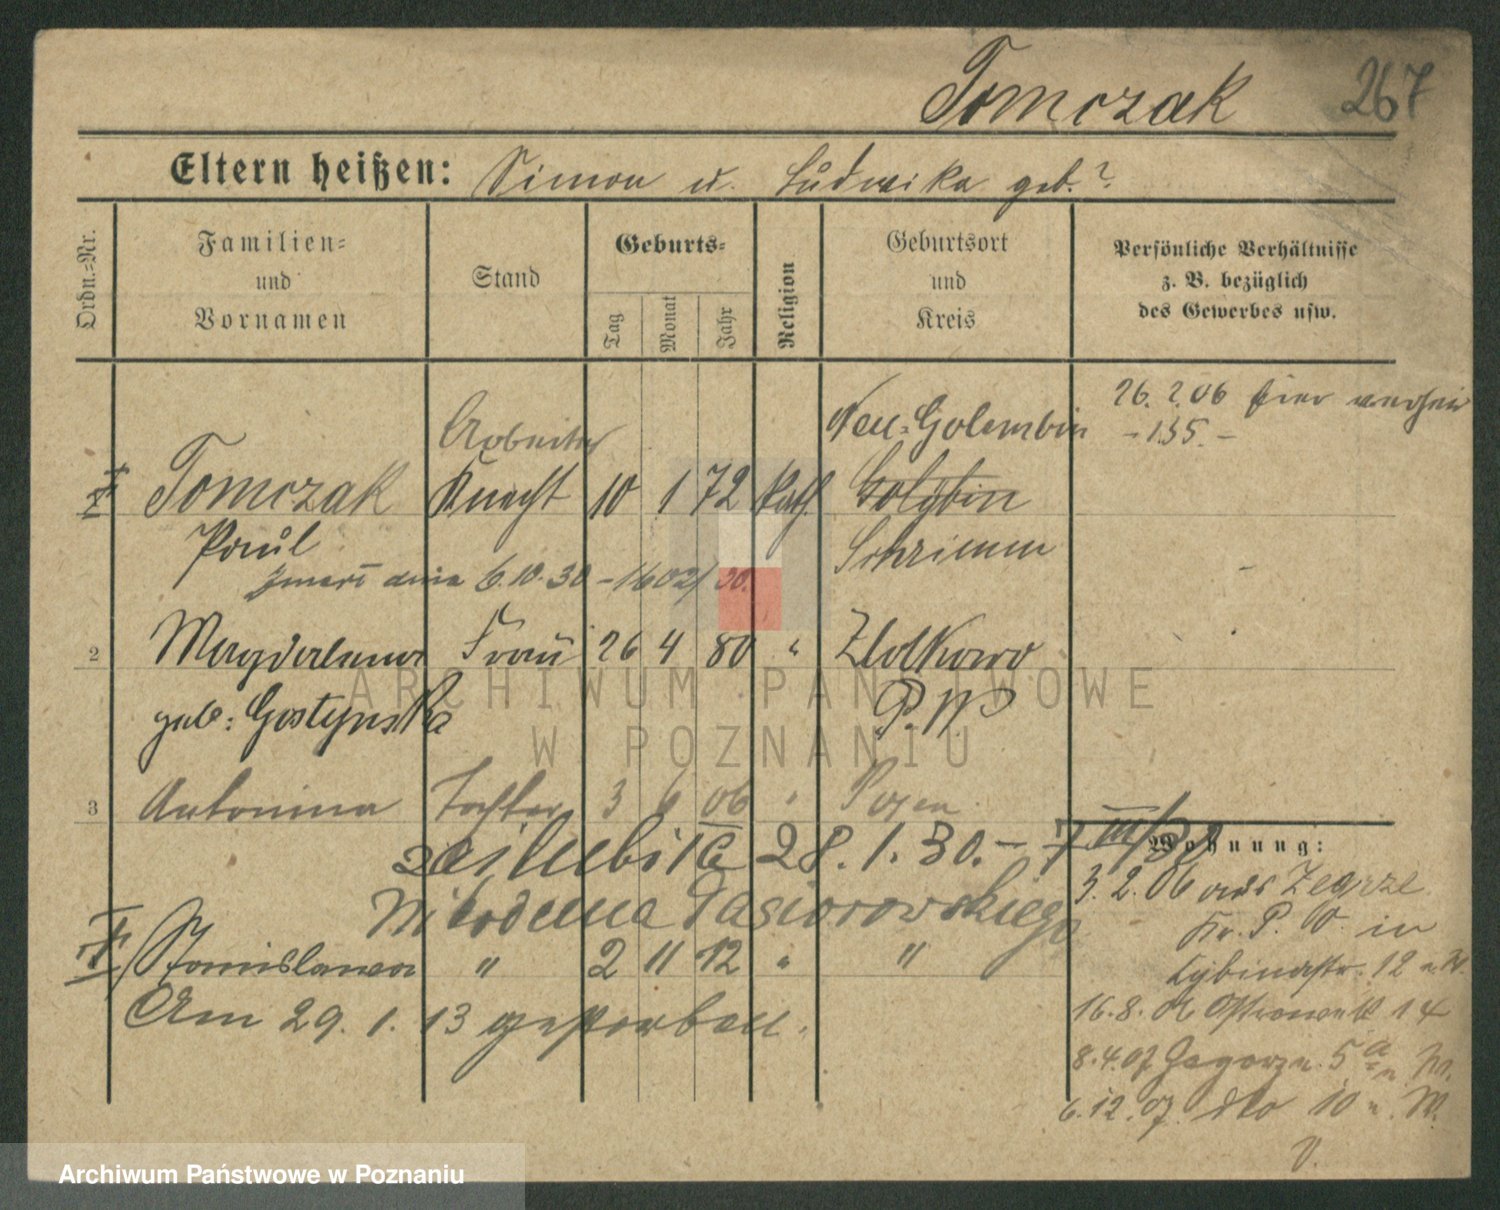 Tomczak 267
Eltern heißen: Simon u. Ludwika geb.?
Ordn.-Nr.
Familien- und Vornamen
Stand
Geburts-
Tag Monat Jahr
Religion
Geburtsort und Kreis
Persönliche Verhältnisse z. B. bezüglich des Gewerbes usw.
26. 2. 06 hier
- 135. -
Arbeiter Neu-Golembin
Tomczak Knecht 10 1 72 kath. Golębin
Paul Schrimm
Zmarł dnia 6.10.30 - 1602/30.
2 Magdalena Frau 26 4 80 " Zlotkowo
geb: Gostynska P. W
3 Antonina Tochter 3 6 06 " Posen
zaślubiła 28. 1. 30. - 7 III/30
Nikodema Gąsiorowskiego
Stanislawa " 2 11 12 " "
Am 29. 1. 13 gestorben.
Wohnung:
3. 2. 06 aus Zegrze
Kr. P. O. in
12
16. 8. 06 Ostrowek 14
8. 4. 07 Zagorze 5 a
6. 12. 07 dto 10 W.
V.
ARCHIWUM PAŃSTWOWE
W POZNANIU
Archiwum Państwowe w Poznaniu